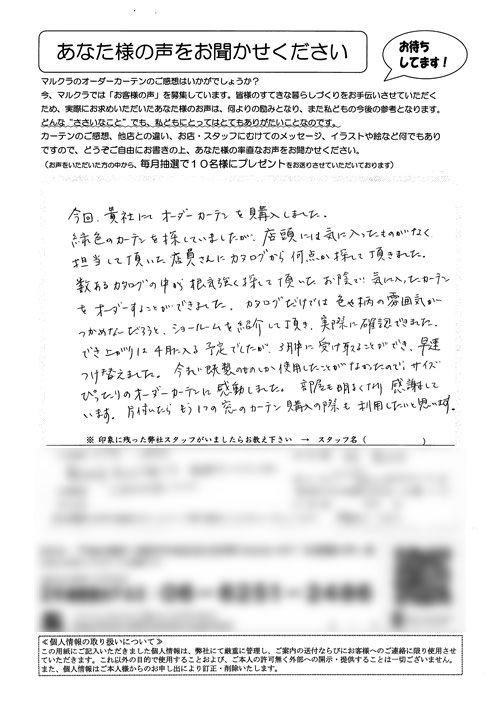 あなた様の声をお聞かせください
お待ち
してます!
マルクラのオーダーカーテンのご感想はいかがでしょうか?
今、マルクラでは「お客様の声」を募集しています。皆様のすてきな暮らしづくりをお手伝いさせていただく
ため、実際にお求めいただいたあなた様のお声は、何よりの励みとなり、また私どもの今後の参考となります。
どんな"ささいなこと"でも、私どもにとってはとてもありがたいことなのです。
カーテンのご感想、他店との違い、お店・スタッフにむけてのメッセージ、イラストや絵など何でもあり
ですので、どうぞご自由にお書きの上、あなた様の率直なお声をお聞かせください。
(お声をいただいた方の中から、毎月抽選で10名様にプレゼントをお送りさせていただいております)
今回、貴社にて オーダーカーテンを購入しました。
緑色のカーテンを探していましたが、店頭には気に入ったものがなく
担当して頂いた店員さんにカタログから何点か探して頂きました。
数あるカタログの中から根気強く探して頂いたお陰で気に入ったカーテン
をオーダーすることができました。カタログだけでは色や柄の雰囲気が
つかめないだろうと、ショールームを紹介して頂き、実際に確認できました。
でき上がりは4月に入る予定でしたが、3月中に受け取ることができ、早速
つけ替えました。今まで既製のものしか使用したことがなかったので、サイズ
ぴったりのオーダーカーテンに感動しました。部屋も明るくなり感謝して
います。片付いたらもう1つの窓のカーテン購入の際も利用したいと思います。
※ 印象に残った弊社スタッフがいましたらお教え下さい → スタッフ名( )
06-6251-2486
≪個人情報の取り扱いについて≫
この用紙にご記入いただきました個人情報は、弊社にて厳重に管理し、ご案内の送付ならびにお客様へのご連絡に限り使用させ
ていただきます。これ以外の目的で使用することおよび、ご本人の許可無く外部への開示・提供することは一切ございません。
また、個人情報はご本人様からのお申し出により訂正・削除いたします。